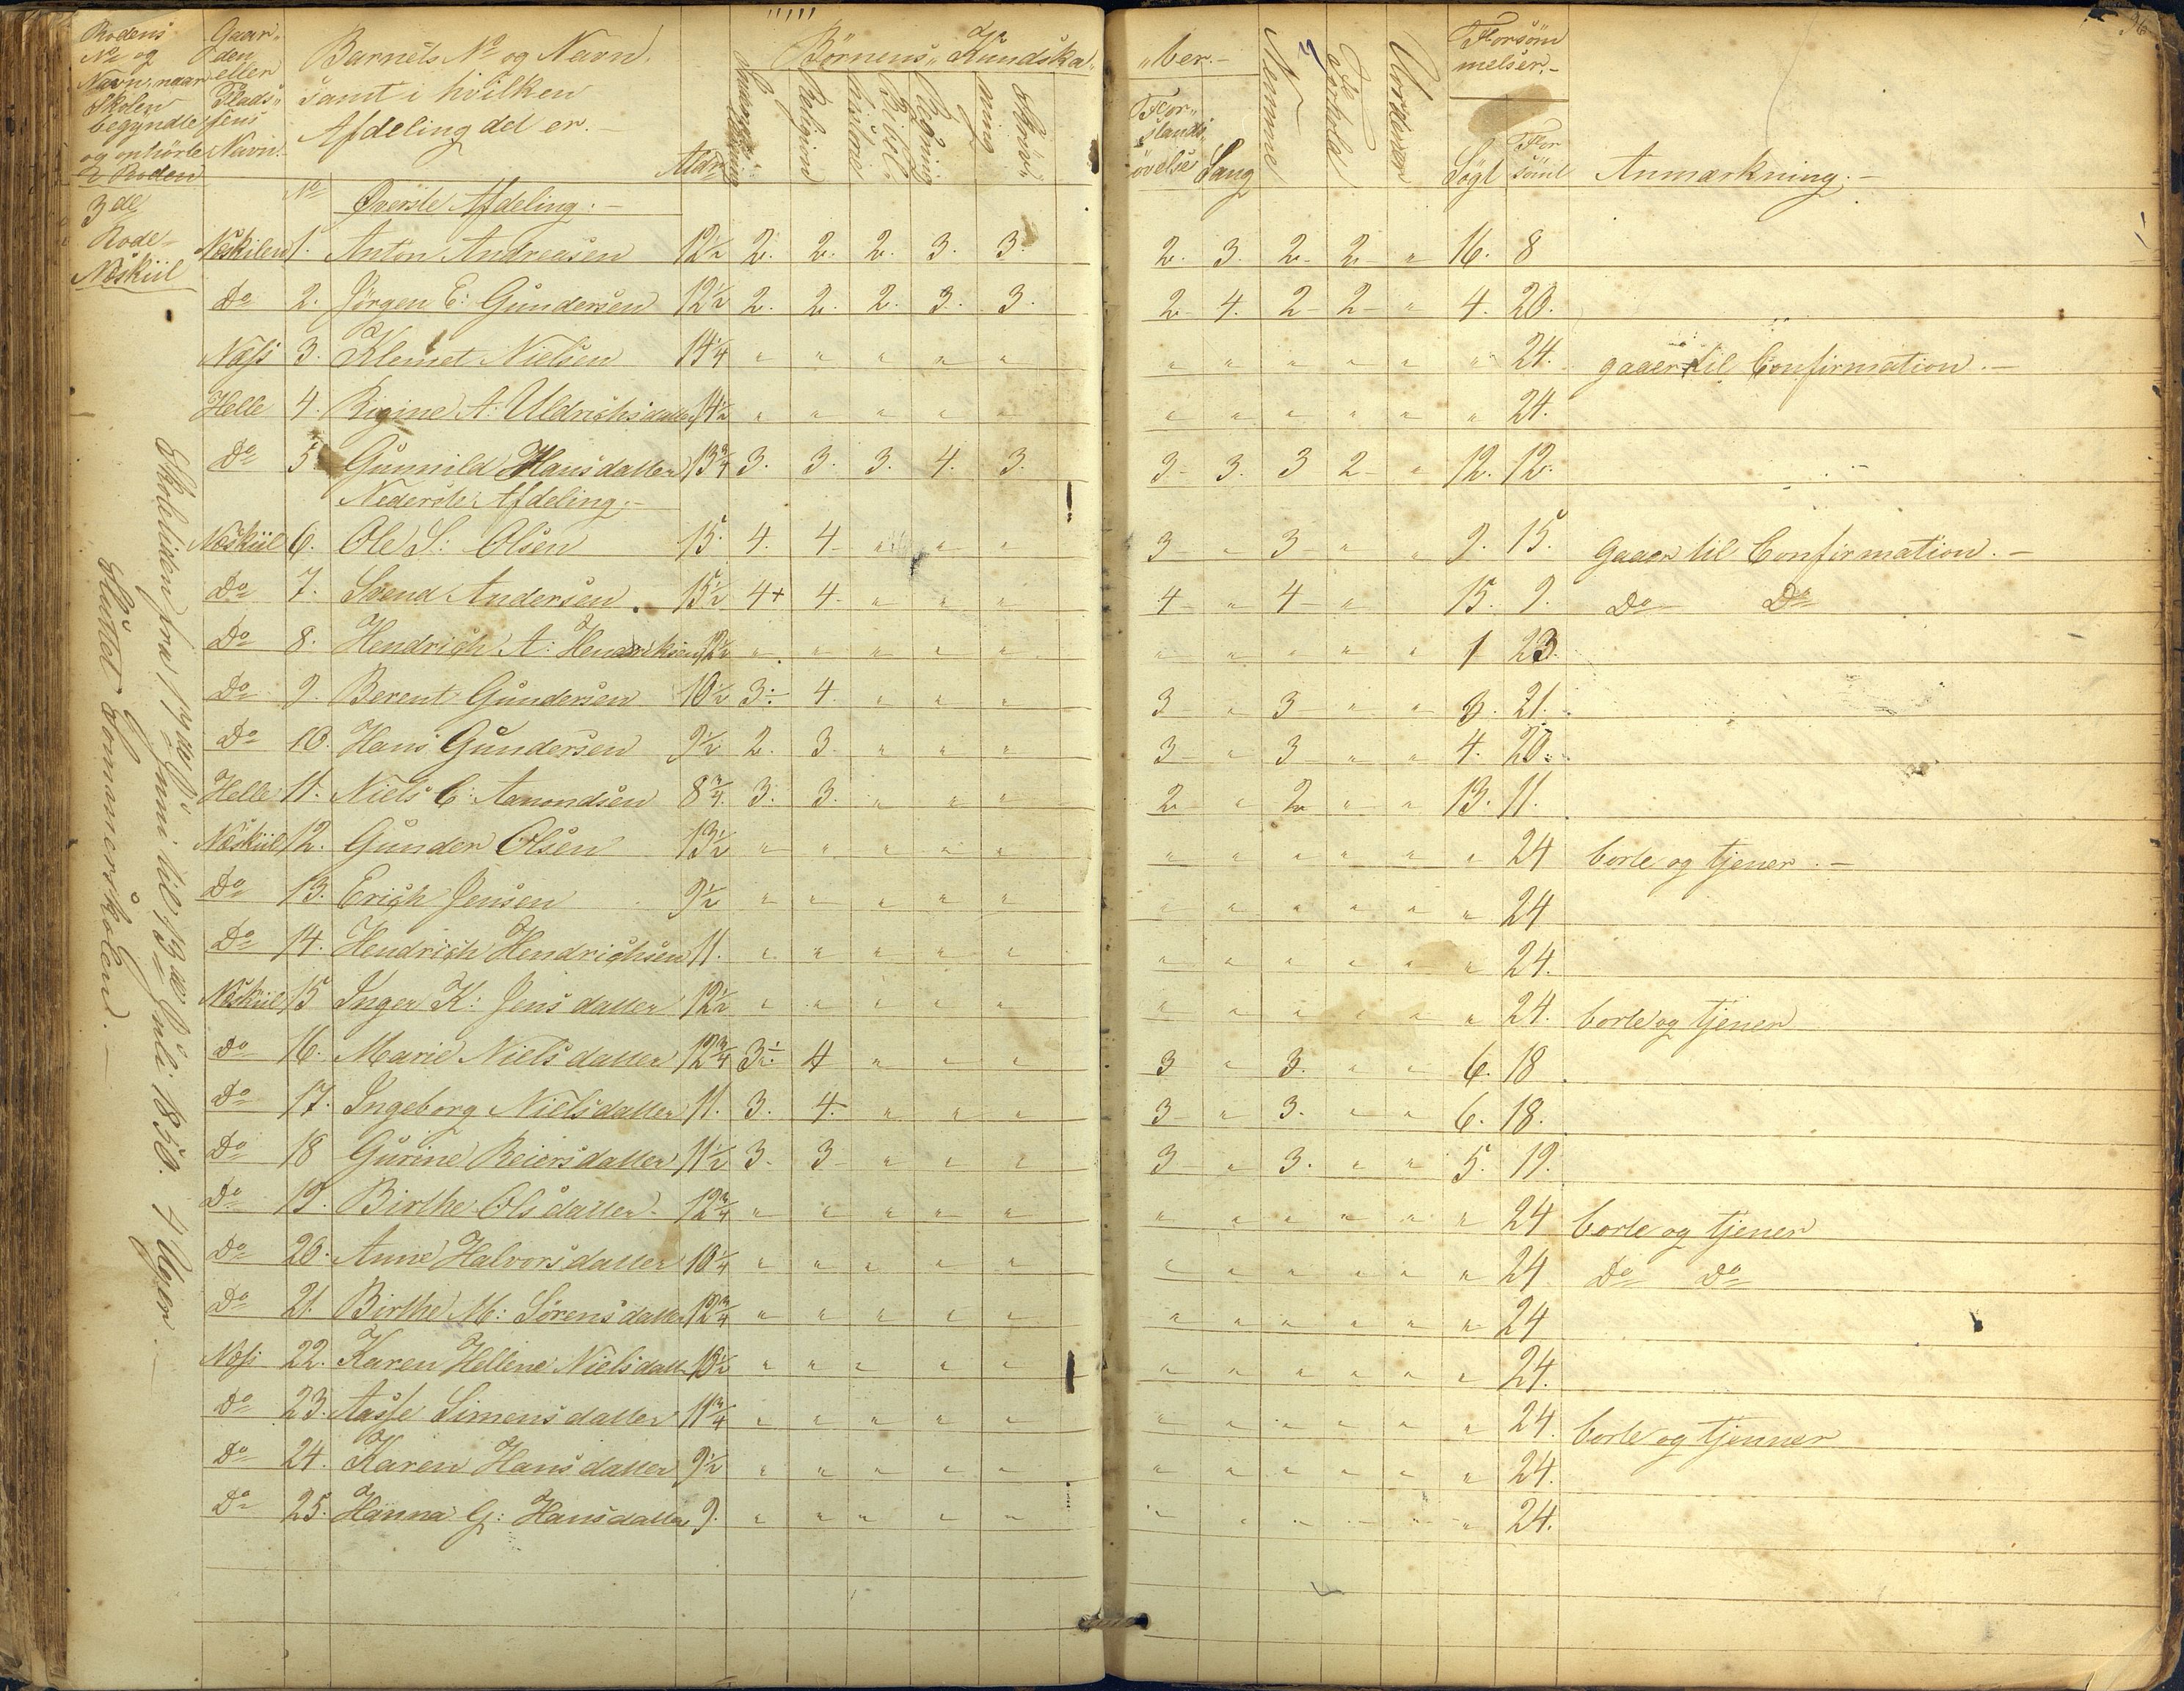 Rodens No og Navn, naar Skolen begyndte og ophörte i Roden
Gaardens eller Pladsens Navn.
Barnets No og Navn, samt i hvilken Afdeling det er.
Alder
Börnenes Kundskaber.
Religion
Bibelhistorie
Regning
Skrivning
Forstandsövelse
Sang
Nemme
Forhold
Forsömmelser.
Sögt
Forsömt
Anmærkning.
36
3die Rode Næskiil
Skoletiden fra 17de Juni til 13de Juli 1850. 4 Uger.
Sluttet Sommerskolen.
No Överste Afdeling.
Næskilen 1. Anton Andreasen 12½ 2. 2. 2. 3. 3. 2. 3. 2 2 " 16. 8
Do 2. Jörgen E: Gundersen 12½ 2. 2. 2. 3. 3. 2 4. 2 2 " 4. 20.
Næss 3. Klemet Nielsen 14¼ " " " " " " " " " " " 24. gaaer til Confirmation.
Helle 4. Rigine A: Uldrichsdatter 14½ " " " " " " " " " " " 24.
Do 5 Gunnild Hansdatter 13¾ 3. 3. 3. 4. 3. 3 3. 3 2 " 12. 12.
Nederste Afdeling.
Næskiil 6. Ole S: Olsen 15. 4. 4 " " " 3 " 3 " " 9. 15. gaaer til Confirmation.
Do 7. Svend Andersen 15½ 4+ 4 " " " 4 " 4 " 15. 9. Do Do
Do 8. Hendrich A: Hendriksen 12½ " " " " " " " " " " 1 23.
Do 9. Berent Gundersen 10½ 3÷ 4. " " " 3 " 3 " " 3. 21.
Do 10. Hans Gundersen 9½ 2. 3. " " " 3 " 3 " " 4. 20.
Helle 11. Niels C: Aanondsen 8¾ 3. 3. " " " 2 " 2 " " 13. 11.
Næskiil 12. Gunder Olsen 13½ " " " " " " " " " " " 24 borte og tjener.
Do 13. Erich Jensen 9½ " " " " " " " " " " " 24
Do 14. Hendrich Hendrichsen 11. " " " " " " " " " " " 24.
Næskiil 15 Inger K: Jensdatter 12½ " " " " " " " " " " " 24. borte og tjener
Do 16. Marie Nielsdatter 12¾ 3÷ 4 " " " 3 " 3. " " 6. 18
Do 17. Ingeborg Nielsdatter 11. 3. 4. " " " 3 " 3. " " 6. 18.
Do 18 Gurine Reiersdatter 11½ 3. 3 " " " 3 " 3. " " 5. 19.
Do 19. Birthe Olsdatter 12¾ " " " " " " " " " " " 24 borte og tjener
Do 20. Anne Halvorsdatter 10¼ " " " " " " " " " " " 24 Do Do
Do 21. Birthe M: Sörensdatter 12¾ " " " " " " " " " " " 24
Næss 22. Karen Hellene Nielsdatt 10½ " " " " " " " " " " " 24.
Do 23. Aasse Simensdatter 11¾ " " " " " " " " " " " 24. borte og tjenner
Do 24. Karen Hansdatter 9½ " " " " " " " " " " " 24.
Do 25. Hanna G: Hansdatter 9. " " " " " " " " " " " 24.